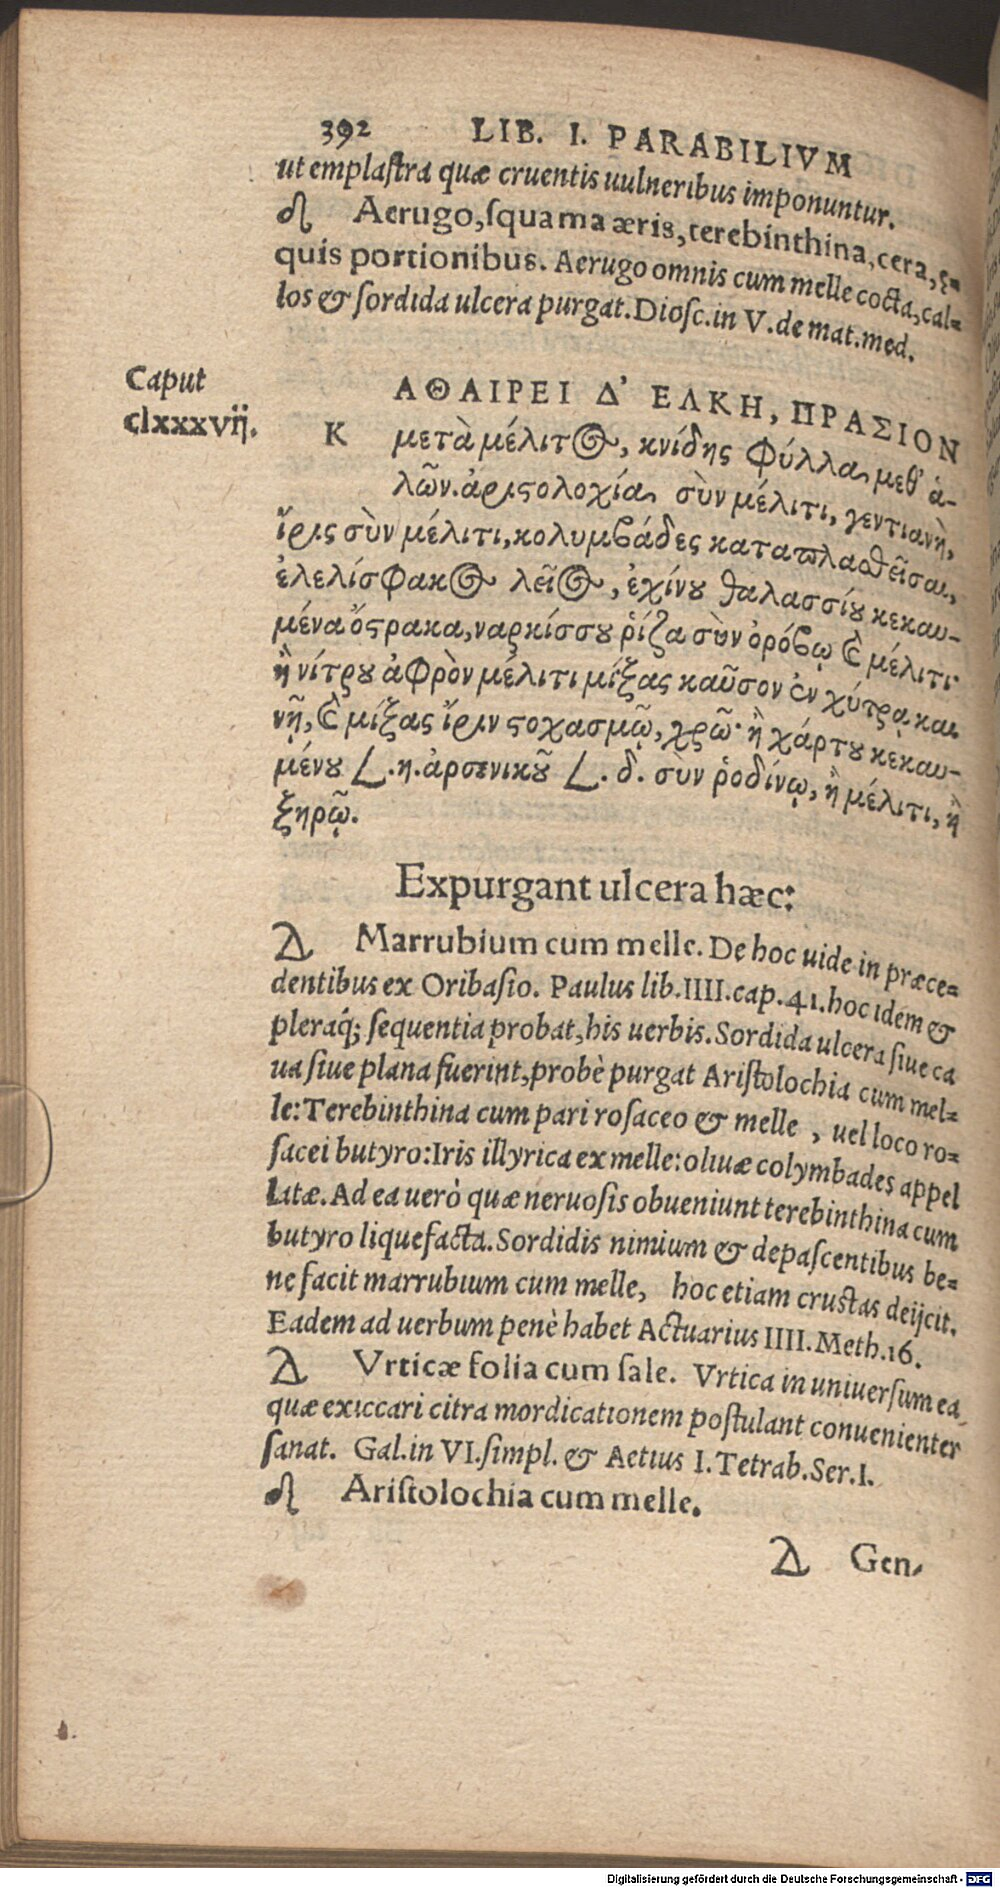 392 LIB. I. PARABILIVM
ut emplaſtra quæ cruentis uulneribus imponuntur.
Aerugo, ſquama æris, terebinthina, cera, ę=
quis portionibus. Aerugo omnis cum melle cocta, cal=
los & ſordida ulcera purgat. Dioſc. in V. de mat. med.
Caput
clxxxvij.
Κ ΑΘΑΙΡΕΙ Δ' ΕΛΚΗ, ΠΡΑΣΙΟΝ
μετὰ μέλιτος, κνίδης φύλλα μεθ' ἁ-
λῶν. ἀριστολοχία σὺν μέλιτι, γεντιανὴ,
ἴρις σὺν μέλιτι, κολυμβάδες καταπλασθεῖσαι,
ἐλελίσφακος λεῖος, ἐχίνου θαλασσίου κεκαυ-
μένα ὄστρακα, ναρκίσσου ῥίζα σὺν ὀρόβῳ καὶ μέλιτι·
ἢ νίτρου ἀφρὸν μέλιτι μίξας καῦσον ἐν χύτρᾳ και
νῇ, καὶ μίξας ἴριν στοχασμῷ, χρῶ· ἢ χάρτου κεκαυ-
μένου L. η. ἀρσενικοῦ L. δ. σὺν ῥοδίνῳ, ἢ μέλιτι, ἢ
ξηρῷ.
Expurgant ulcera hæc:
Marrubium cum melle. De hoc uide in præce=
dentibus ex Oribaſio. Paulus lib. IIII. cap. 41. hoc idem &
pleraq; ſequentia probat, his uerbis. Sordida ulcera ſiue ca
ua ſiue plana fuerint, probè purgat Ariſtolochia cum mel=
le: Terebinthina cum pari roſaceo & melle, uel loco ro=
ſacei butyro: Iris illyrica ex melle: oliuæ colymbades appel
latæ. Ad ea uerò quæ neruoſis obueniunt terebinthina cum
butyro liquefacta. Sordidis nimium & depaſcentibus be=
ne facit marrubium cum melle, hoc etiam cruſtas deijcit.
Eadem ad uerbum penè habet Actuarius IIII. Meth. 16.
Vrticæ folia cum ſale. Vrtica in uniuerſum ea
quæ exiccari citra mordicationem poſtulant conuenienter
ſanat. Gal. in VI. ſimpl. & Aetius I. Tetrab. Ser. I.
Ariſtolochia cum melle.
Gen-
Digitalisierung gefördert durch die Deutsche Forschungsgemeinschaft - DFG